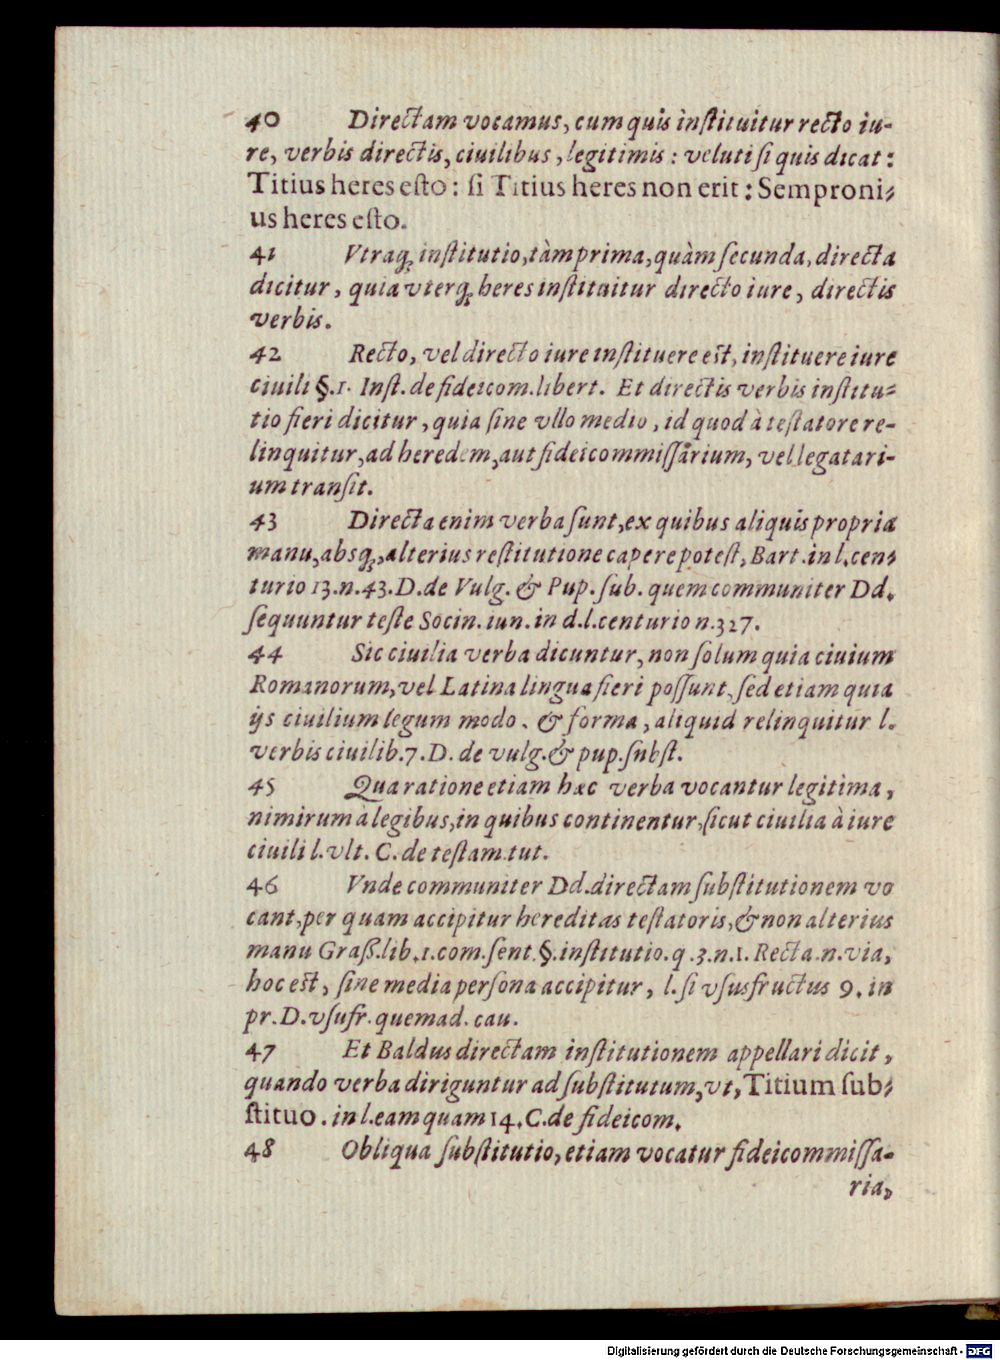 40 Directam vocamus, cum quis instituitur recto iu-
re, verbis directis, ciuilibus, legitimis: veluti si quis dicat:
Titius heres esto: si Titius heres non erit: Semproni-
us heres esto.
41 Vtraq; institutio, tàm prima, quàm secunda, directa
dicitur, quia vterq; heres instituitur directo iure, directis
verbis.
42 Recto, vel directo iure instituere est, instituere iure
ciuili §.1. Inst. de fideicom. libert. Et directis verbis institu-
tio fieri dicitur, quia sine vllo medio, id quod à testatore re-
linquitur, ad heredem, aut fideicommissarium, vel legatari-
um transit.
43 Directa enim verba sunt, ex quibus aliquis propria
manu, absq;, alterius restitutione capere potest, Bart. in l. cen-
turio 13. n. 43. D. de Vulg. & Pup. sub. quem communiter Dd.
sequuntur teste Socin. iun. in d. l. centurio n. 327.
44 Sic ciuilia verba dicuntur, non solum quia ciuium
Romanorum, vel Latina lingua fieri possunt, sed etiam quia
ijs ciuilium legum modo. & forma, aliquid relinquitur l.
verbis ciuilib. 7. D. de vulg. & pup. subst.
45 Qua ratione etiam hæc verba vocantur legitima,
nimirum a legibus, in quibus continentur, sicut ciuilia à iure
ciuili l. vlt. C. de testam. tut.
46 Vnde communiter Dd. directam substitutionem vo
cant, per quam accipitur hereditas testatoris, & non alterius
manu Graß. lib. 1. com. sent. §. institutio. q. 3. n. 1. Recta. n. via,
hoc est, sine media persona accipitur, l. si vsusfructus 9. in
pr. D. vsufr. quemad. cau.
47 Et Baldus directam institutionem appellari dicit,
quando verba diriguntur ad substitutum, vt, Titium sub-
stituo. in l. eam quam 14. C. de fideicom.
48 Obliqua substitutio, etiam vocatur fideicommissa-
ria,
Digitalisierung gefördert durch die Deutsche Forschungsgemeinschaft - DFG